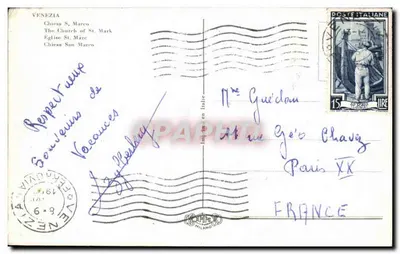 VENEZIA
Chiesa S. Marco
The Church of St. Mark
Eglise St. Marc
Chiesa San Marco
Respectueux
Souvenirs de
Vacances
POSTE ITALIANE
15 LIRE
Mme Guédon
rue Géo Chavez
Paris XX
FRANCE
VENEZIA
FERROVIA
6 - 9
MILANO